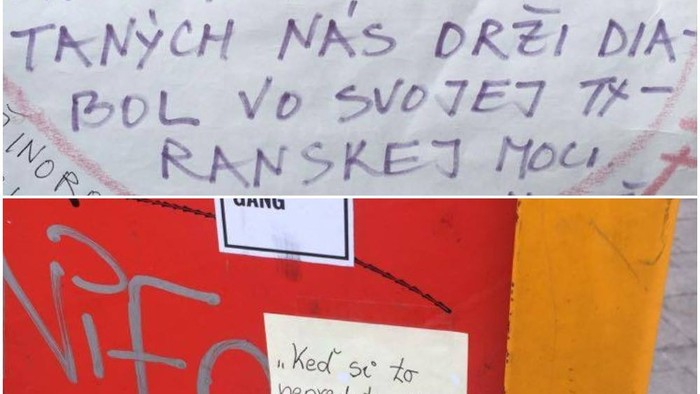 TANÝCH NÁS DRŽÍ DIA-
BOL VO SVOJEJ TY-
RANSKEJ MOCI.
ŽINOR
GANG
„Keď si to